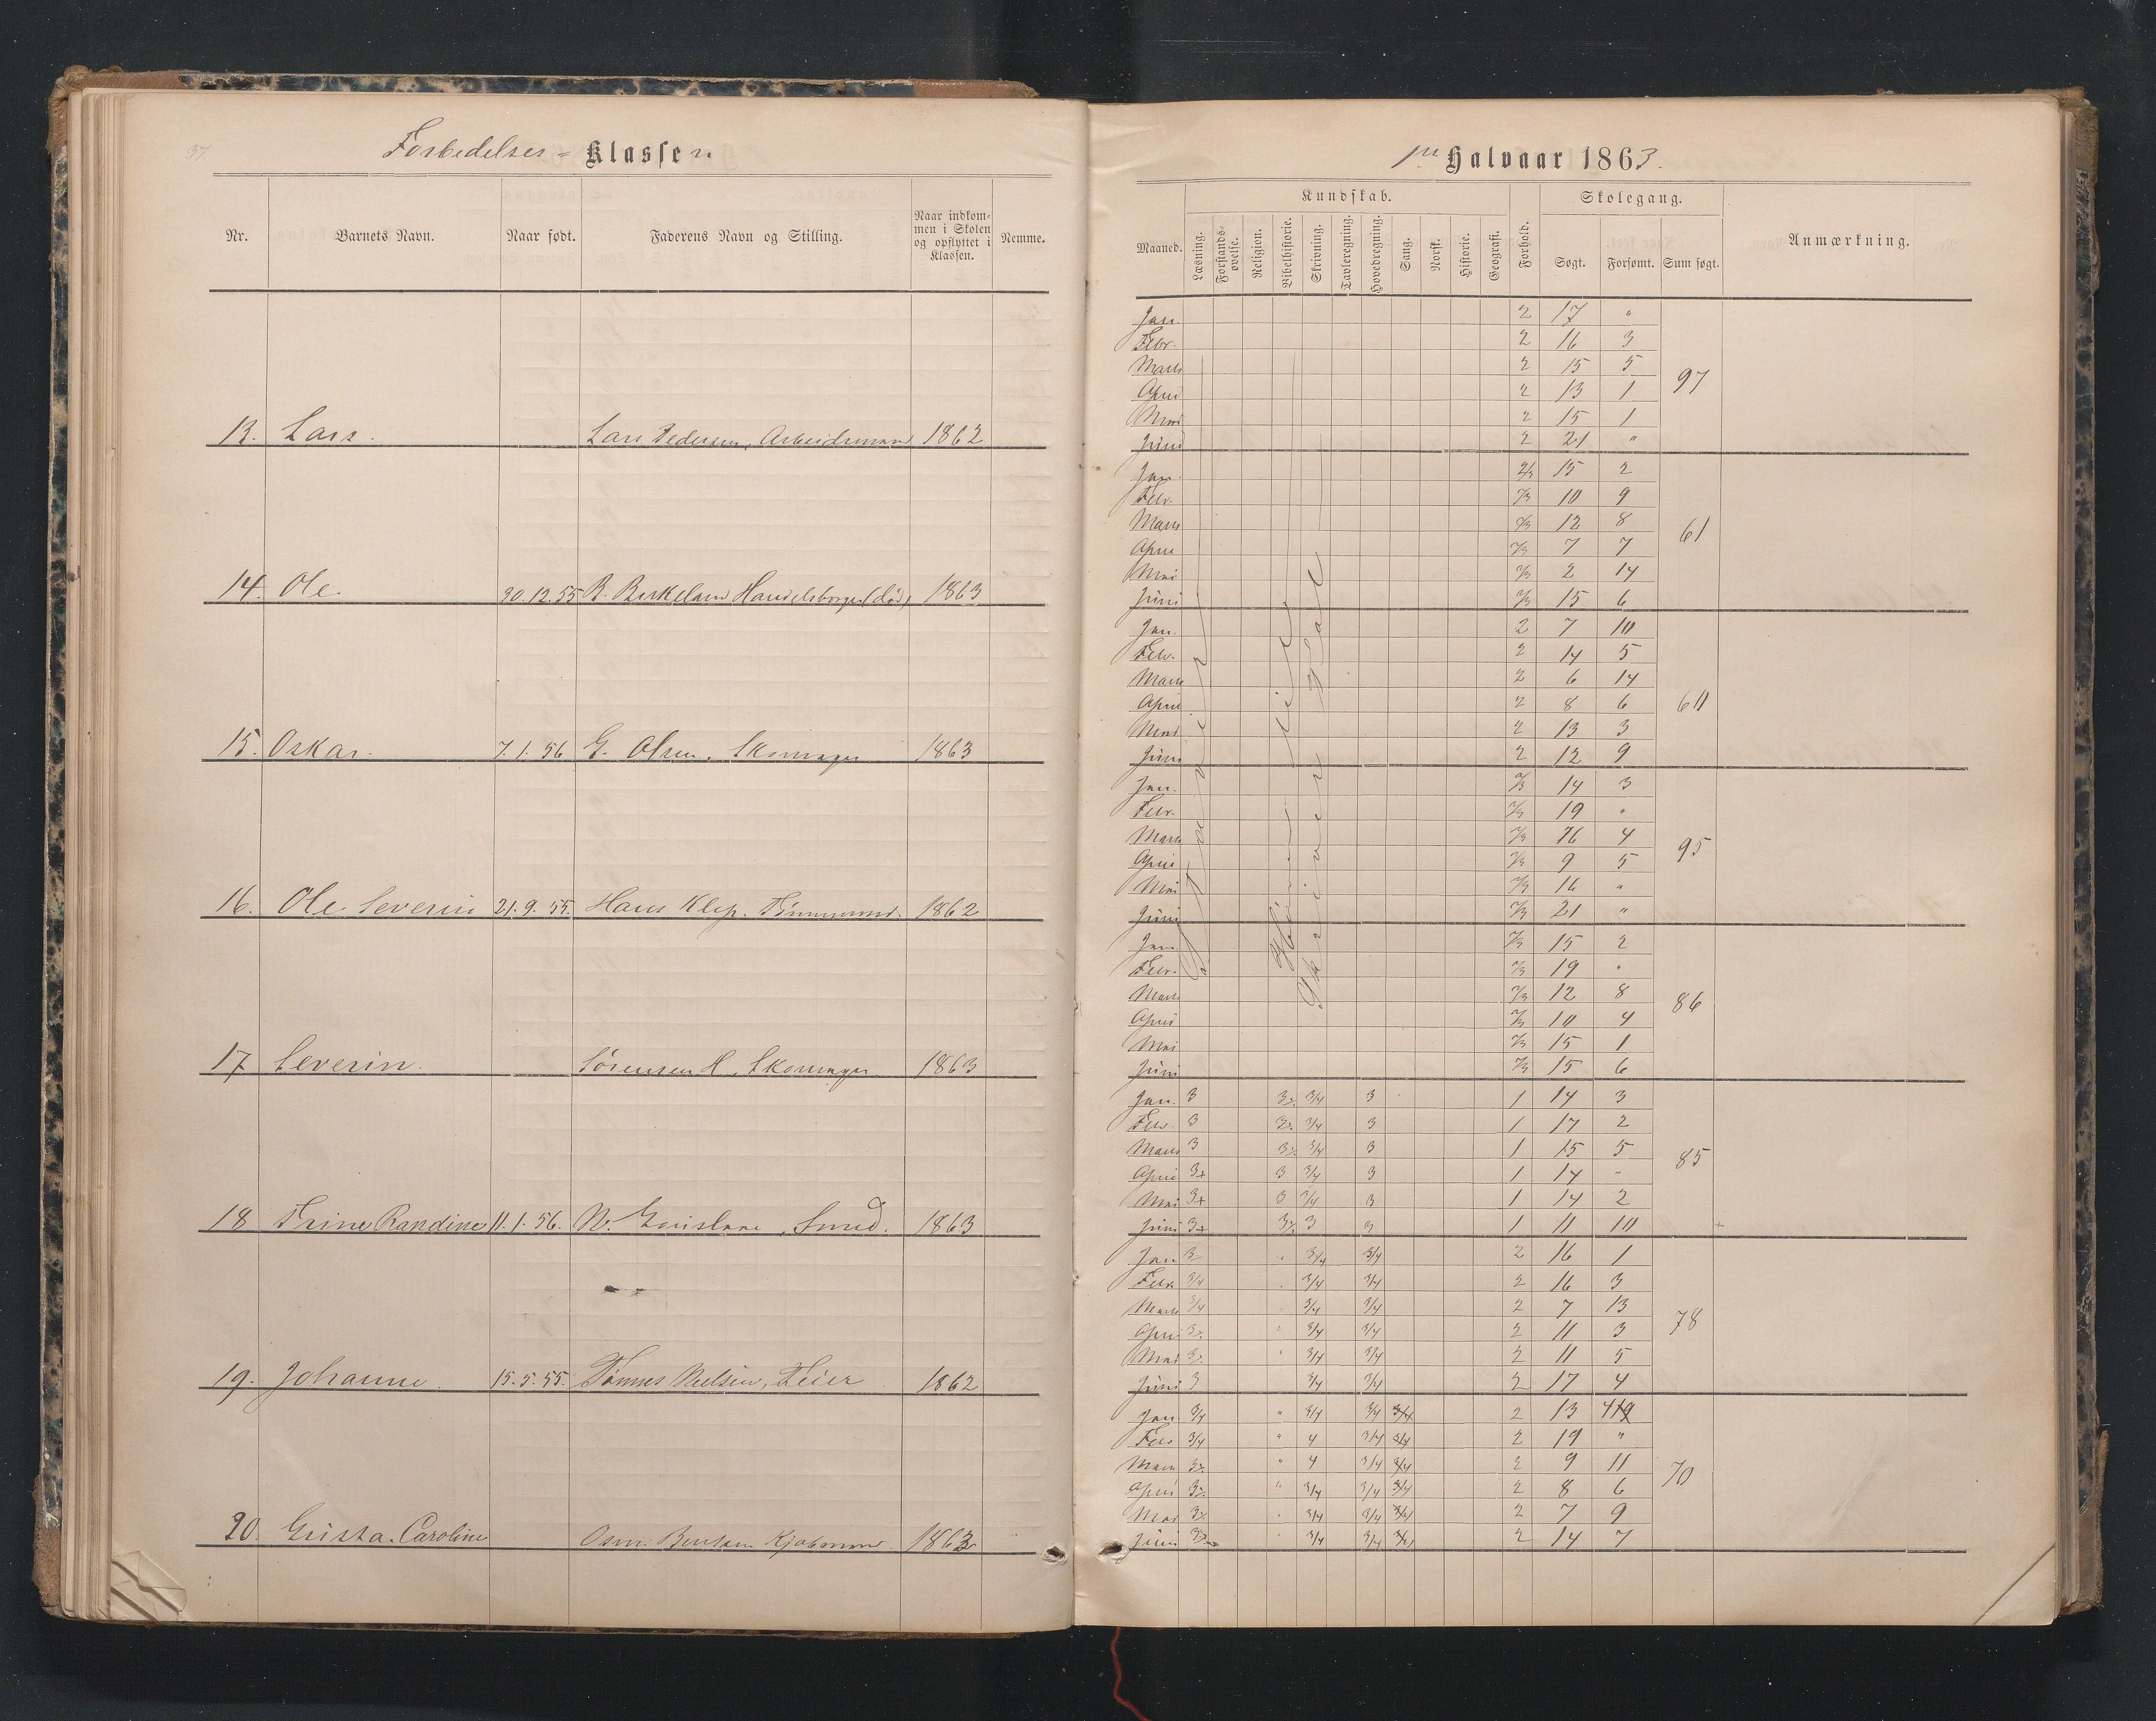 37.
Forbedelses - Klassen
Nr. Barnets Navn. Naar født. Faderens Navn og Stilling. Naar indkom- men i Skolen og opflyttet i Klassen. Nemme.
13. Lars. Lars Pedersen, Arbeidsmand 1862
14. Ole. 30.12.55 B. Birkeland Handelsborger (død) 1863
15. Oskar. 7.1.56 G. Olsen, Skomager 1863
16. Ole Severin 21.9.55. Hans Klep. Tømmermd. 1862
17 Severin. Sørensen H, Skomager 1863
18 Trine Randine 11.1.56. N. Smed. 1863
19. Johanne. 15.5.55. Tønnes Nielsen, Feier 1862
20. Gusta. Caroline 1863
1ste Halvaar 1863.
Kundskab. Skolegang.
Maaned. Læsning. Forstands- øvelse. Religion. Bibelhistorie. Skrivning. Tavleregning. Hovedregning. Sang. Norsk. Historie. Geografi. Forhold. Søgt. Forsømt. Sum søgt. Anmærkning.
Jan. 2 17 "
Febr. 2 16 3
Marts 2 15 5
April 2 13 1 97
Mai 2 15 1
Juni 2 21 "
Jan. 2/3 15 2
Febr. 2/3 10 9
Marts 2/3 12 8
April 2/3 7 7 61
Mai 2/3 2 14
Juni 2/3 15 6
Jan. 2 7 10
Febr. 2 14 5
Marts 2 6 14
April 2 8 6 60
Mai 2 13 3
Juni 2 12 9
Jan. 2/3 14 3
Febr. 2/3 19 "
Marts 2/3 16 4
April 2/3 9 5 95
Mai 2/3 16 "
Juni 2/3 21 "
Jan. 2/3 15 2
Febr. 2/3 19 "
Marts 2/3 12 8
April 2/3 10 4 86
Mai 2/3 15 1
Juni 2/3 15 6
Skriver på Tal
Jan. 3 3/4 3 1 14 3
Febr. 3 3/4 3 1 17 2
Marts 3 3/4 3 1 15 5
April 3+ 3 3/4 3 1 14 " 85
Mai 3+ 3 3/4 3 1 14 2
Juni 3+ 3 3 1 11 10
Jan. 3 3/4 3/4 2 16 1
Febr. 3/4 3/4 3/4 2 16 3
Marts 3/4 3/4 3/4 2 7 13
April 3/4 3/4 2 11 3 78
Mai 3/4 3/4 2 11 5
Juni 3 3/4 3/4 2 17 4
Jan. 3/4 " 3/4 3/4 3/4 2 13 4
Febr. 3/4 " 4 3/4 3/4 2 19 "
Marts " 4 3/4 3/4 2 9 11
April " 3/4 3/4 3/4 2 8 6 70
Mai " 3/4 3/4 3/4 2 7 9
Juni 3/4 3/4 3/4 2 14 7